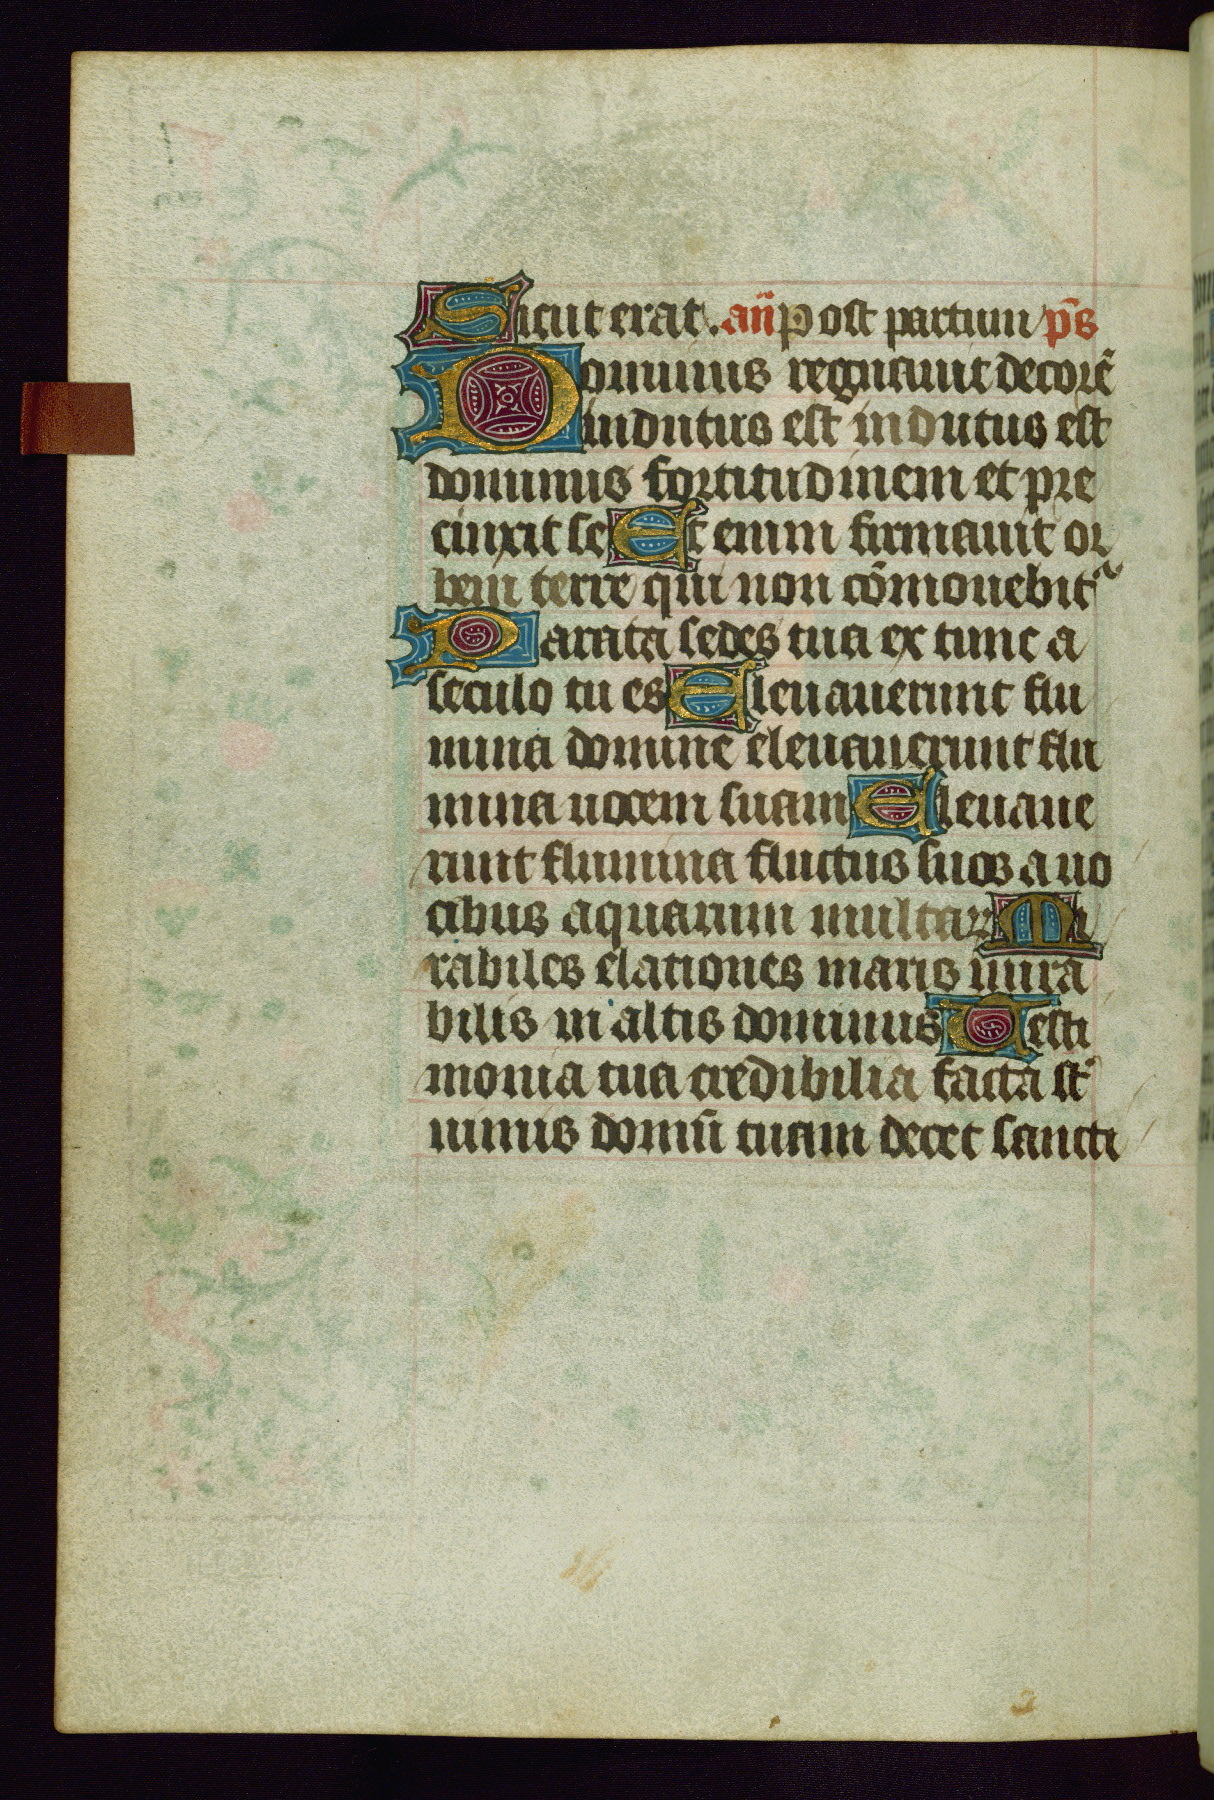 Sicut erat. an̄ Post partum ps̄
Dominus regnauit decorē
indutus est indutus est
dominus fortitudinem et pre
cinxit se Et enim firmauit or
bem terre qui non cōmouebit᷑
Parata sedes tua ex tunc a
seculo tu es Eleuauerunt flu
mina domine eleuauerunt flu
mina uocem suam Eleuaue
runt flumina fluctus suos a uo
cibus aquarum multarꝝ Mi
rabiles elationes maris mira
bilis in altis dominus Testi
monia tua credibilia facta st̄
nimis domū tuam decet sancti